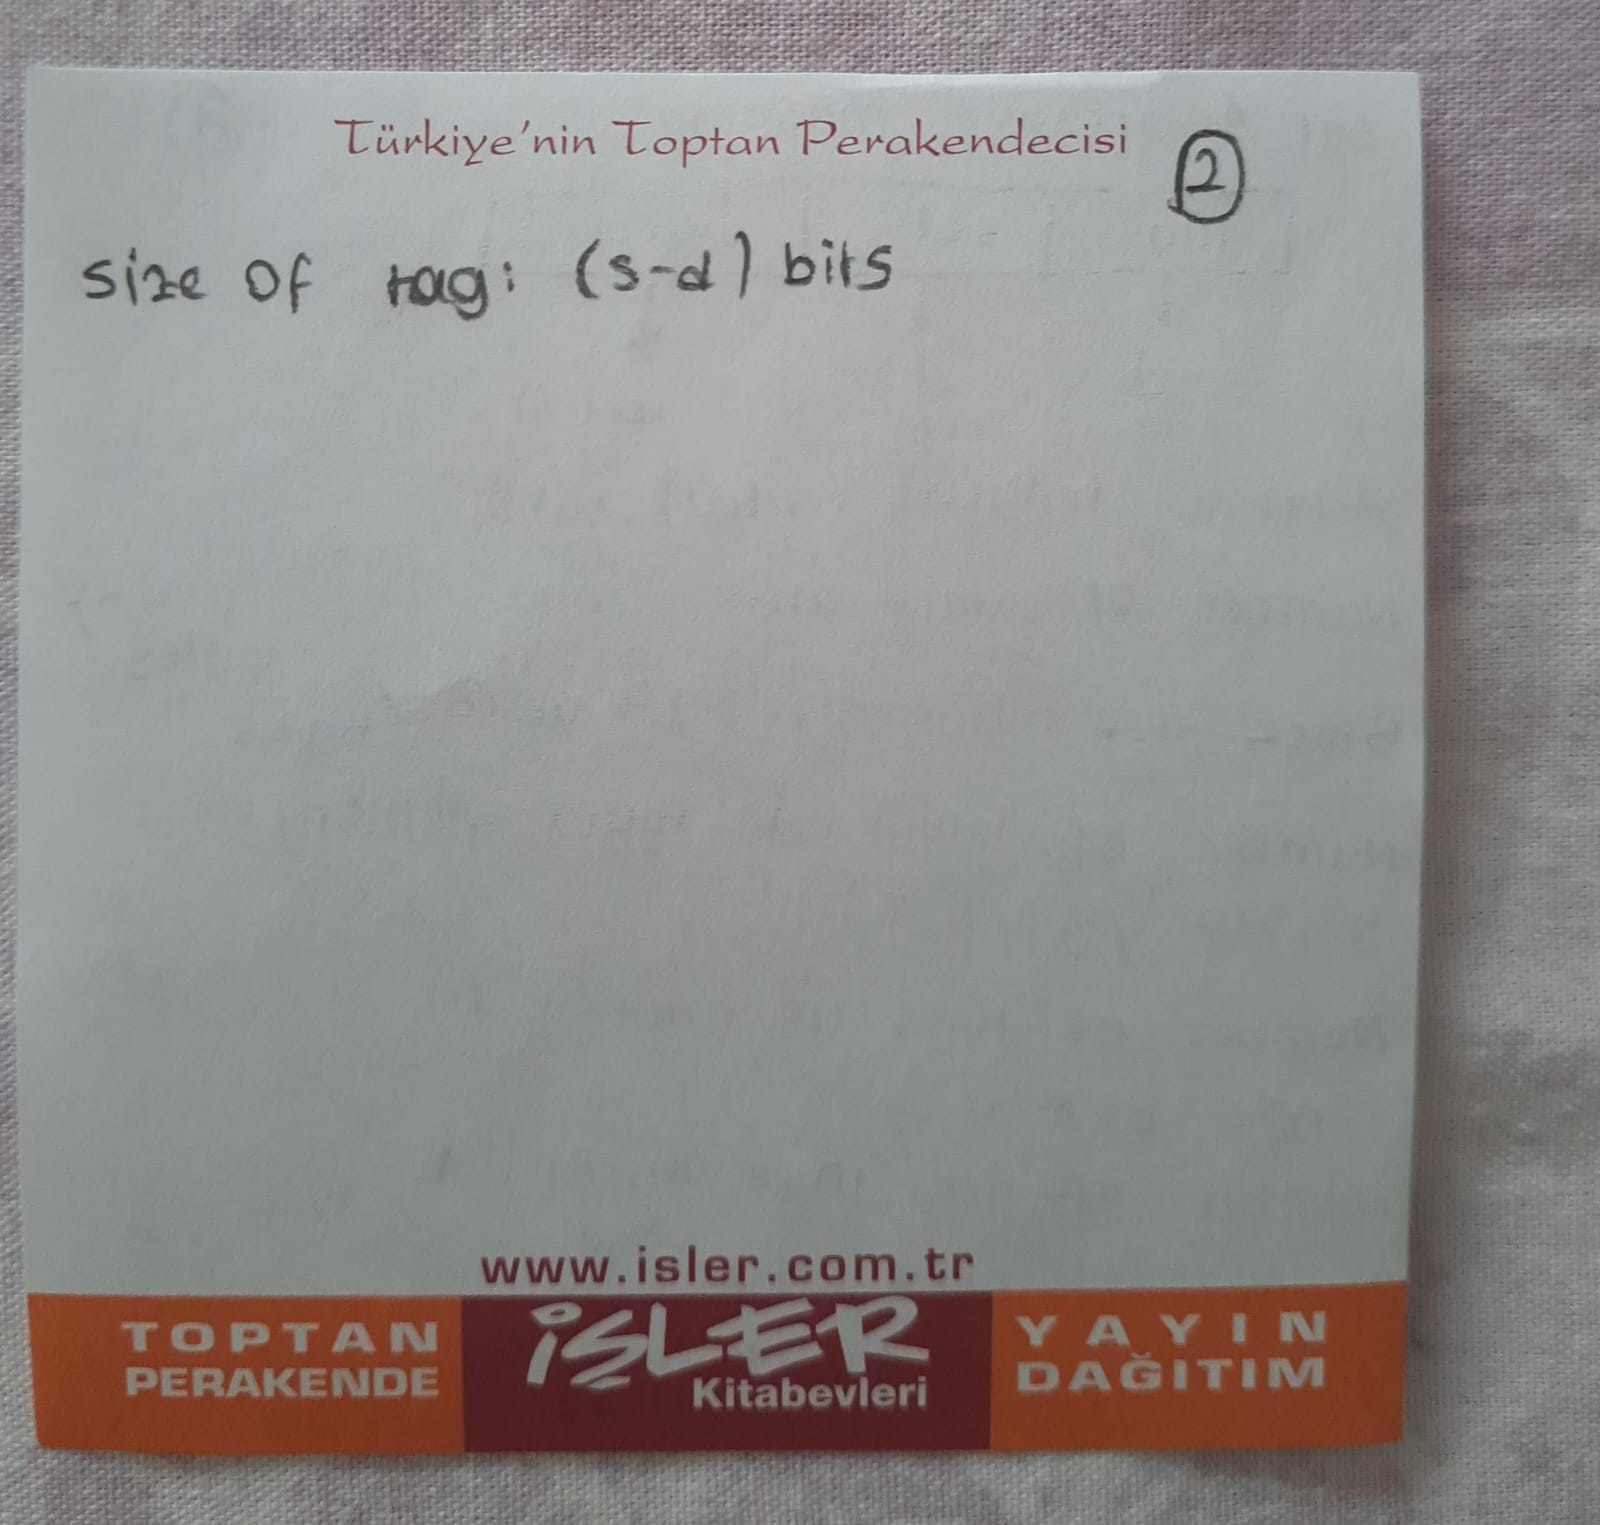 Türkiye'nin Toptan Perakendecisi
2
size of tag: (s-d) bits
www.isler.com.tr
TOPTAN
PERAKENDE
İŞLER
Kitabevleri
YAYIN
DAĞITIM